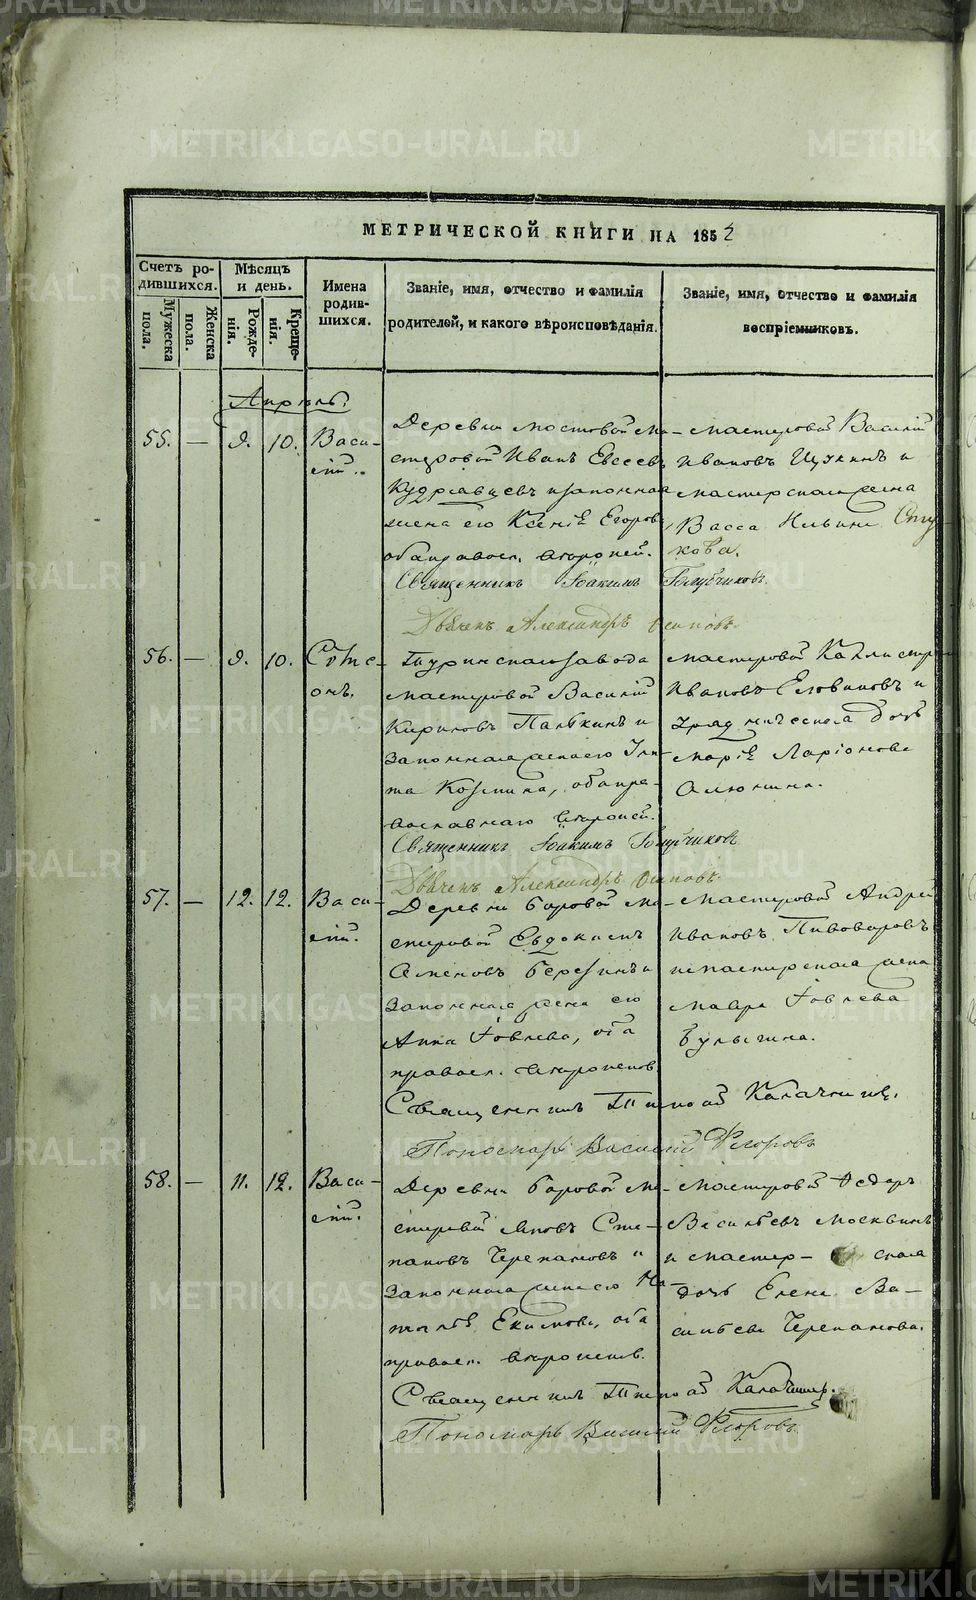 METRIKI.GASO-URAL.RU
МЕТРИЧЕСКОЙ КНИГИ НА 1852
Счетъ ро-
дившихся.
Мужеска пола.
Женска пола.
Мѣсяцъ
и день.
Рожде-
нія.
Креще-
нія.
Имена
родив-
шихся.
Званіе, имя, отчество и фамилія
родителей, и какого вѣроисповѣданія.
Званіе, имя, отчество и фамилія
воспріемниковъ.
Апрѣль.
55. — 9. 10. Васи-
лій.
Деревни Мостовой ма-
стеровой Иванъ Евсеевъ
Кудрявцевъ и законная
жена его Ксенія Егорова
оба правосл. вѣроисп.
Мастеровой Василій
Ивановъ Щукинъ и
мастерская жена
Васса Ильина Сту-
кова.
Священникъ Іоакимъ Голубчиковъ
Дьяченъ Александръ Осиповъ.
56. — 9. 10. Сѵме-
онъ.
Туринскаго завода
мастеровой Василій
Кириловъ Палкинъ и
законная жена его
Козмина, оба пра-
вославнаго вѣроисп.
Мастеровой Каллистр
Ивановъ и
дочь
Марія Ларіонова
Алюнина.
Священникъ Іоакимъ Голубчиковъ
Дьяченъ Александръ Осиповъ.
57. — 12. 12. Васи-
лій.
Деревни Боровой ма-
стеровой Евдокимъ
Семеновъ Березинъ и
законная жена его
Анна Іовлева, оба
правосл. вѣроисповѣд.
Мастеровой Андрей
Ивановъ Пивоваровъ
и мастерская жена
Мавра Іовлева
Булыгина.
Священникъ Тимоѳей Калачниковъ.
Пономарь Василій Флоровъ
58. — 11. 12. Васи-
лій.
Деревни Боровой ма-
стеровой Яковъ Сте-
пановъ Черепановъ и
законная жена его На-
талья Екимова, оба
правосл. вѣроисповѣд.
Мастеровой Ѳедоръ
Васильевъ Москвинъ
и мастер- ская
дочь Елена Ва-
сильева Черепанова.
Священникъ Тимоѳей Калачниковъ.
Пономарь Василій Флоровъ